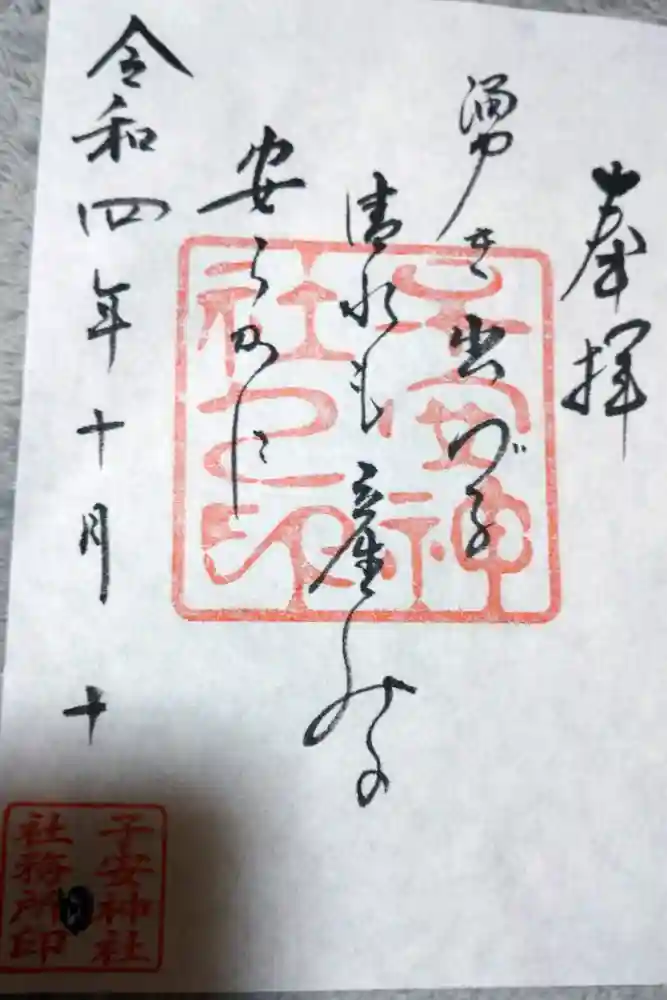 奉拝
湧き出づる
清水も産みの
安らかに
令和四年十月十日
子安神
社之印
子安神社
社務所印